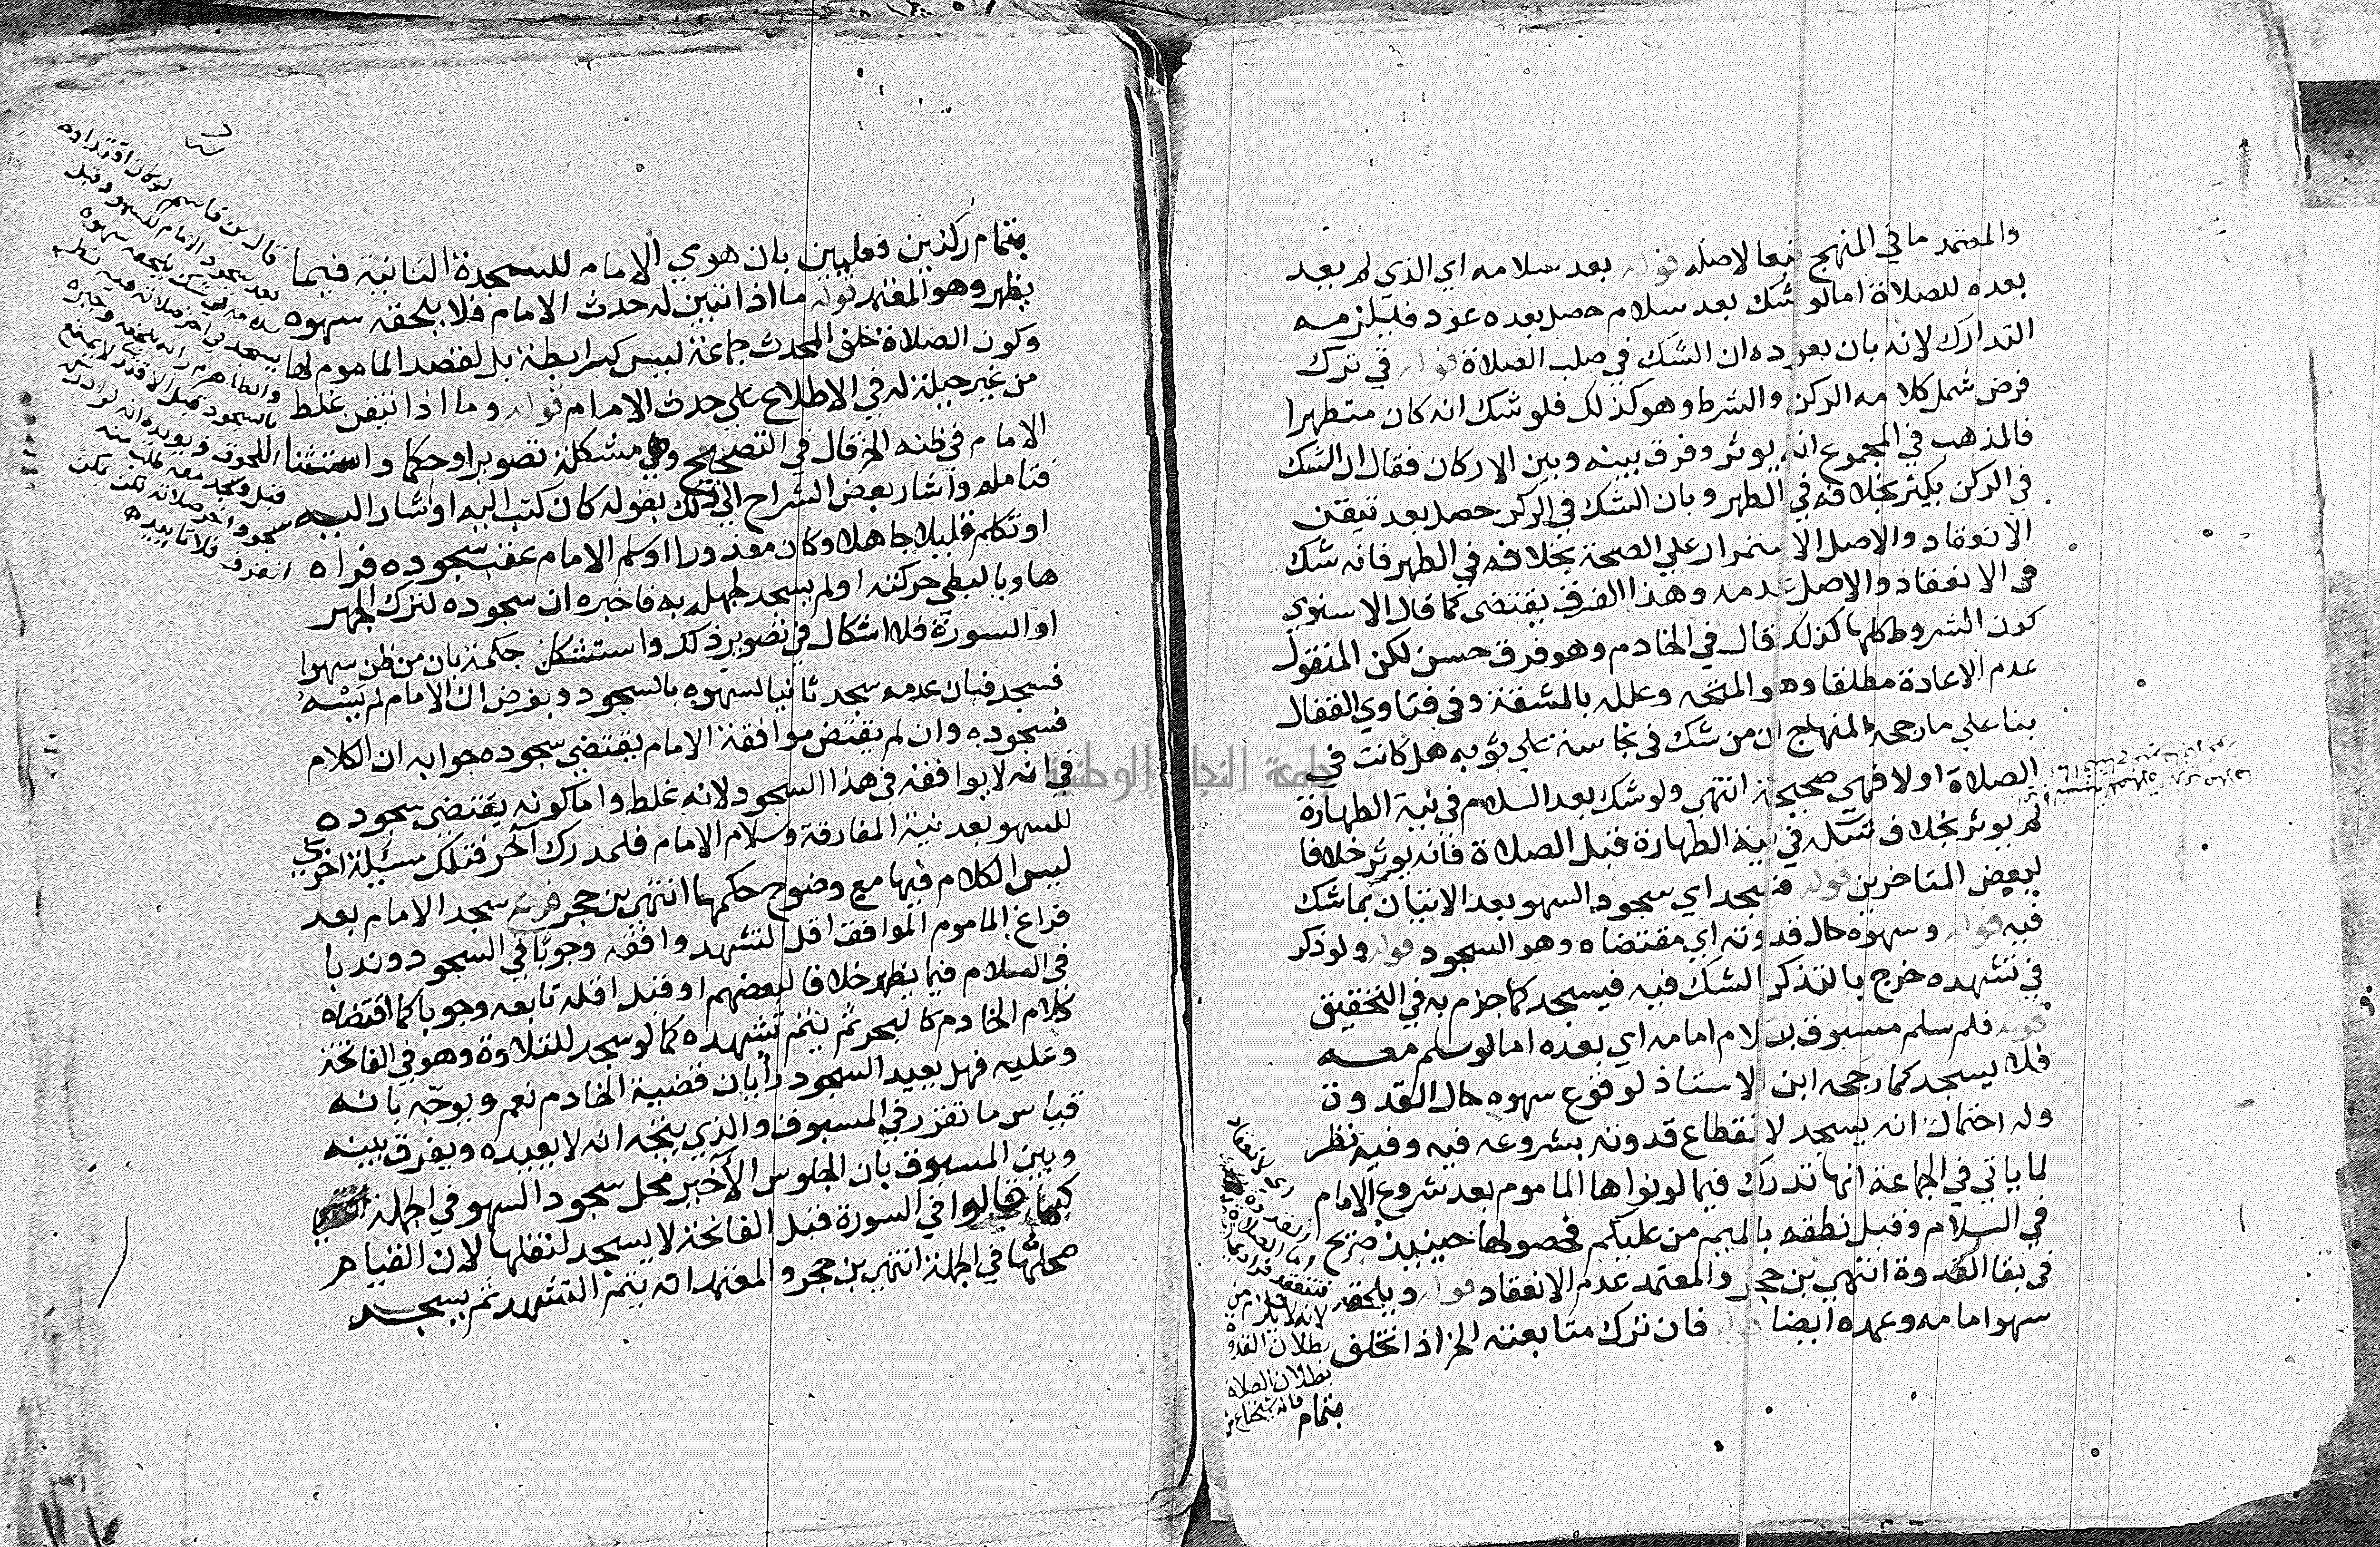 والمعتمد ما في المنهج تبعا لاصله قوله بعد سلامه اي الذي لم يعد
بعده للصلاة اما لو شك بعد سلام حصل بعده عود فيلزمه
التدارك لانه بان بعوده ان الشك في صلب الصلاة قوله في ترك
فرض شمل كلامه الركن والشرط وهو كذلك فلو شك انه كان متطهرا
فالمذهب في المجموع انه يوثر وفرق بينه وبين الاركان فقال ان الشك
في الركن يكثر بخلافه في الطهر وبان الشك في الركن حصل بعد تيقن
الانعقاد والاصل الاستمرار علي الصحة بخلافه في الطهر فانه شك
في الانعقاد والاصل عدمه وهذا الفرق يقتضي كما قال الاسنوي
كون الشروط كلها كذلك قال في الخادم وهو فرق حسن لكن المنقول
عدم الاعادة مطلقا وهو المتجه وعلله بالمشقة وفي فتاوي القفال
بنا علي ما رجحه المنهاج ان من شك في نجاسة علي ثوبه هل كانت في
الصلاة اولا فهي صحيحة انتهي ولو شك بعد السلام في نية الطهارة
لم يوثر بخلاف شكه في نية الطهارة قبل الصلاة فانه يوثر خلافا
لبعض المتاخرين قوله فسجد اي سجود السهو بعد الاتيان بما شك
فيه قوله وسهوه حال قدوته اي مقتضاه وهو السجود قوله ولو ذكر
في تشهده خرج بالتذكر الشك فيه فيسجد كما جزم به في التحقيق
قوله فلو سلم مسبوق بسلام امامه اي بعده اما لو سلم معه
فلا يسجد كما رجحه ابن الاستاذ لوقوع سهوه حال القدوة
وله احتمال انه يسجد لانقطاع قدوته بشروعه فيه وفيه نظر
لما ياتي في الجماعة انها تدرك فيما لو نواها الماموم بعد شروع الامام
في السلام وقبل نطقه بالميم من عليكم فحصولها حينيذ صريح
في بقا القدوة انتهي بن حجر والمعتمد عدم الانعقاد قوله ويلحقه
سهو امامه وعمده ايضا قوله فان ترك متابعته الخ اذا تخلف
بطلان القدوة
بطلان الصلاة
بتمام
بتمام ركنين فعليين بان هوي الامام للسجدة الثانية فيما
يظهر وهو المعتمد قوله ما اذا تبين له حدث الامام فلا يلحقه سهوه
وكون الصلاة خلف المحدث جماعة ليس كرابطة بل لقصد الماموم لها
من غير حيلة له في الاطلاع علي حدث الامام قوله وما اذا تيقن غلط
الامام في ظنه الخ قال في التصحيح وهي مشكلة تصويرا وحكما واستثنا
فتامله واشار بعض الشراح الي ذلك بقوله كان كتب اليه او شار اليه
او تكلم قليلا جاهلا وكان معذورا او سلم الامام عقب سجوده فراه
هاويا لبطي حركته او لم يسجد لجهله به فاخبره ان سجوده لترك الجهر
او السورة فلا اشكال في تصوير ذلك واستشكل حكمه بان من ظن سهوا
فسجد فبان عدمه سجد ثانيا لسهوه بالسجود وبفرض ان الامام لم يسه
فسجوده وان لم يقتض موافقة الامام يقتضي سجوده جوابه ان الكلام
في انه لا يوافقه في هذا السجود لانه غلط واما كونه يقتضي سجوده
للسهو بعد نية المفارقة وسلام الامام فلمدرك آخر فتلك مسئلة اخري
ليس الكلام فيها مع وضوح حكمها انتهي بن حجر فرع سجد الامام بعد
فراغ الماموم الموافق اقل التشهد وافقه وجوبا في السجود وندبا
في السلام فيما يظهر خلافا لبعضهم او قبل اقله تابعه وجوبا كما اقتضاه
كلام الخادم كالبحر ثم يتم تشهده كما لو سجد للتلاوة وهو في الفاتحة
وعليه فهل يعيد السجود رأيان قضية الخادم نعم ويوجه بانه
قياس ما تقرر في المسبوق والذي يتجه انه لا يعيده ويفرق بينه
وبين المسبوق بان الجلوس الاخير محل سجود السهو في الجملة
كما قالوا في السورة قبل الفاتحة لا يسجد لنقلها لان القيام
محلها في الجملة انتهي بن حجر والمعتمد انه يتم التشهد ثم يسجد
قال بن قاسم لو كان اقتداوه
بعد سجود الامام للسهو وقبل
سلامه فهل يلحقه سهوه
فيسجد في اخر صلاته فيه نظر
والظاهر انه يلحقه وجبره
بالسجود قبل الاقتدا لا يمنع
جامعة النجاح الوطنية